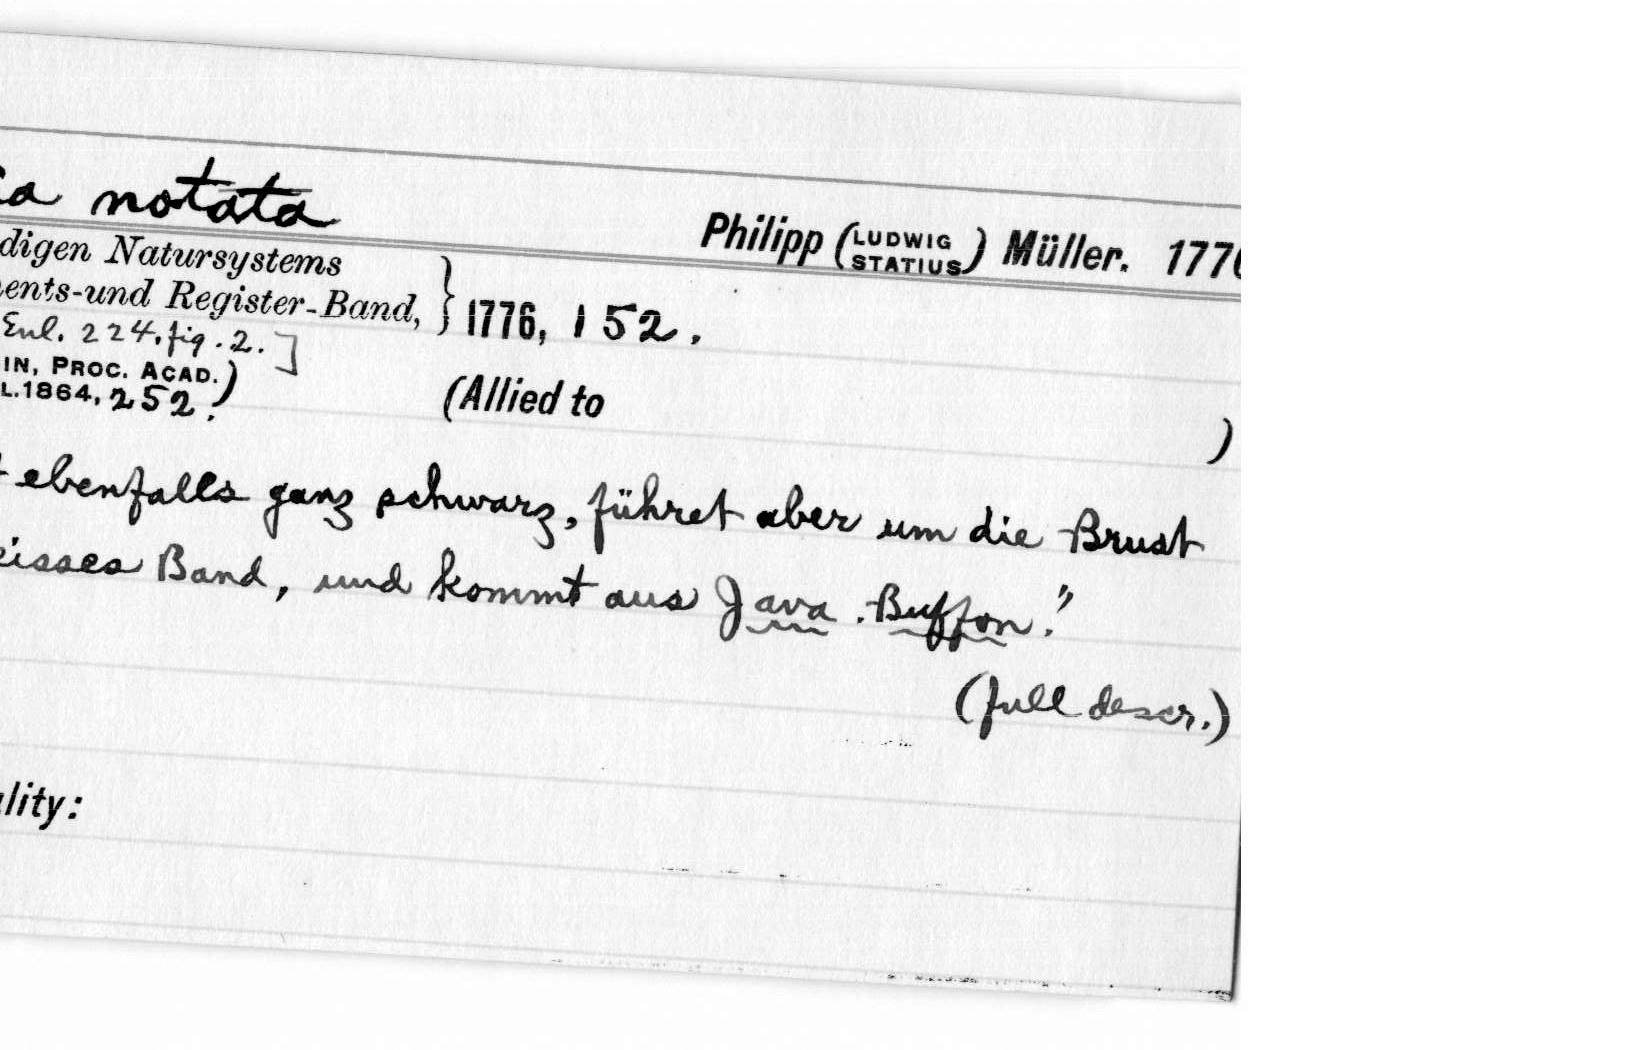 notata
Philipp (LUDWIG STATIUS) Müller. 177
digen Natursystems
ents-und Register-Band, } 1776, 152.
Enl. 224. fig. 2.]
IN, PROC. ACAD.
L. 1864, 252.)
(Allied to )
ebenfalls ganz schwarz, führet aber um die Brust
eisses Band, und kommt aus Java. Buffon."
(full descr.)
lity: